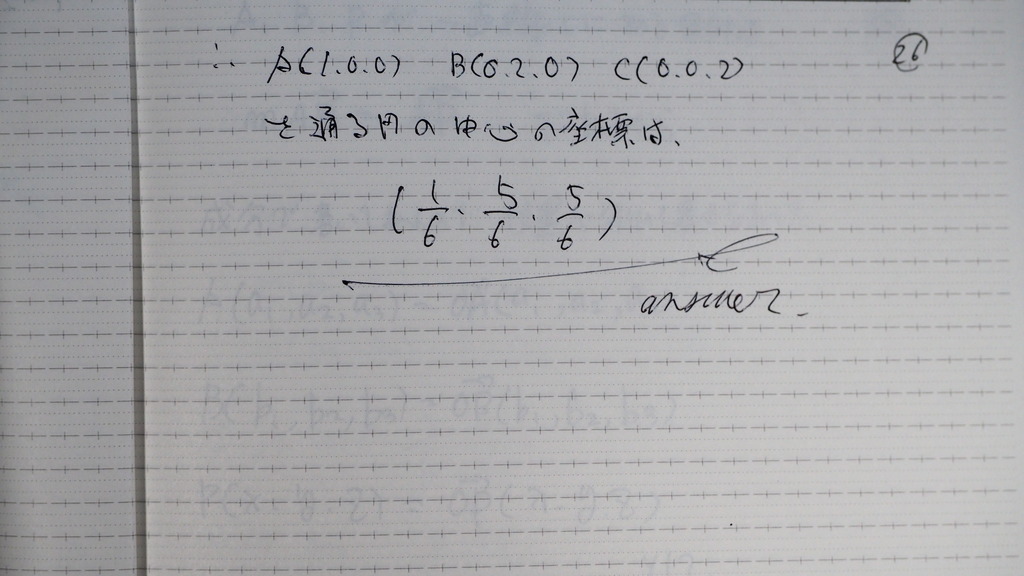 ∴ A(1.0.0) B(0.2.0) C(0.0.2)
㉖
を通る円の中心の座標は、
(1/6 . 5/6 . 5/6)
answer.